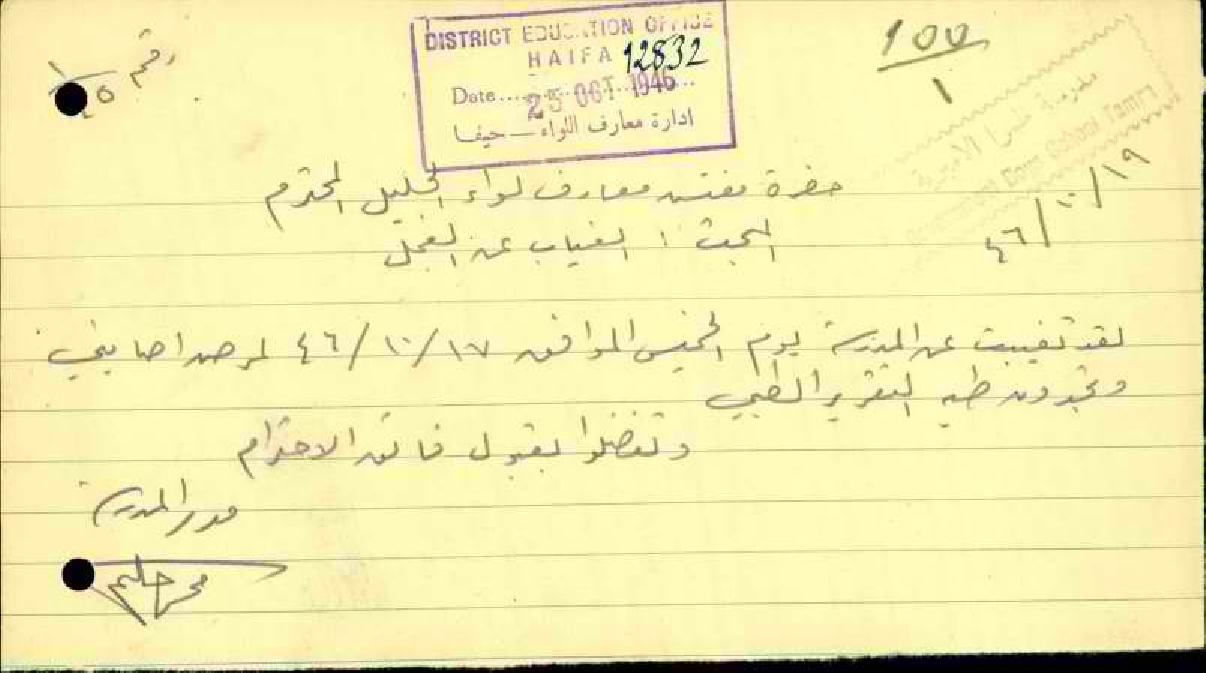 رقم
١/٤٥
DISTRICT EDUCATION OFFICE
HAIFA 12832
Date 25 OCT 1946
ادارة معارف اللواء – حيفا
100
1
مدرسة طمرا الاميرية
Government Boys School Tamra
١٩/١٠/٤٦
حضرة مفتش معارف لواء الجليل المحترم
البحث : الغياب عن العمل
لقد تغيبت عن المدرسة يوم الخميس الموافق ١٧/١٠/٤٦ لمرض اصابني
وتجدون طيه التقرير الطبي
وتفضلوا بقبول فائق الاحترام
مدير المدرسة